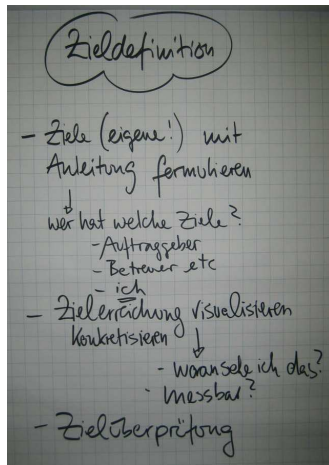 Zieldefinition
- Ziele (eigene!) mit
Anleitung formulieren
wer hat welche Ziele?
- Auftraggeber
- Betreuer etc
- ich
- Zielerreichung visualisieren
Konkretisieren
- woran sehe ich das?
- messbar?
- Zielüberprüfung